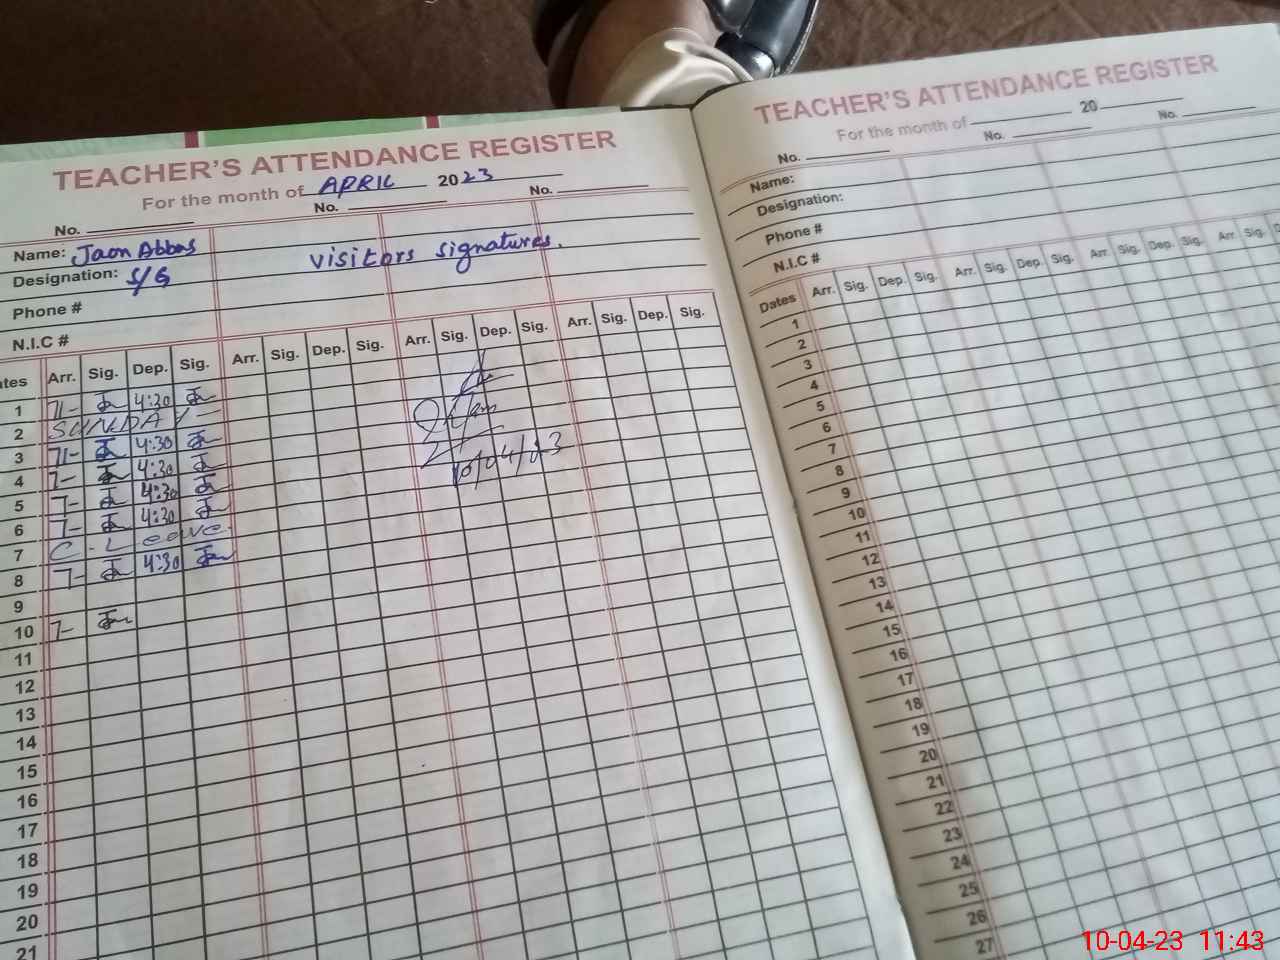 TEACHER'S ATTENDANCE REGISTER
For the month of APRIL 2023
No. No. No.
Name: Jaon Abbas
Designation: S/G
visitors signatures.
Phone #
N.I.C #
ates Arr. Sig. Dep. Sig. Arr. Sig. Dep. Sig. Arr. Sig. Dep. Sig. Arr. Sig. Dep. Sig.
1 7- 4:30
2 SUNDAY
3 7- 4:30
4 7- 4:30
5 7- 4:30
6 7- 4:30
7 C. Leave.
8 7- 4:30
9
10 7-
11
12
13
14
15
16
17
18
19
20
21
10/04/23
TEACHER'S ATTENDANCE REGISTER
For the month of 20
No. No. No.
Name:
Designation:
Phone #
N.I.C #
Dates Arr. Sig. Dep. Sig. Arr. Sig. Dep. Sig. Arr. Sig. Dep. Sig. Arr. Sig.
1
2
3
4
5
6
7
8
9
10
11
12
13
14
15
16
17
18
19
20
21
22
23
24
25
26
27
10-04-23 11:43